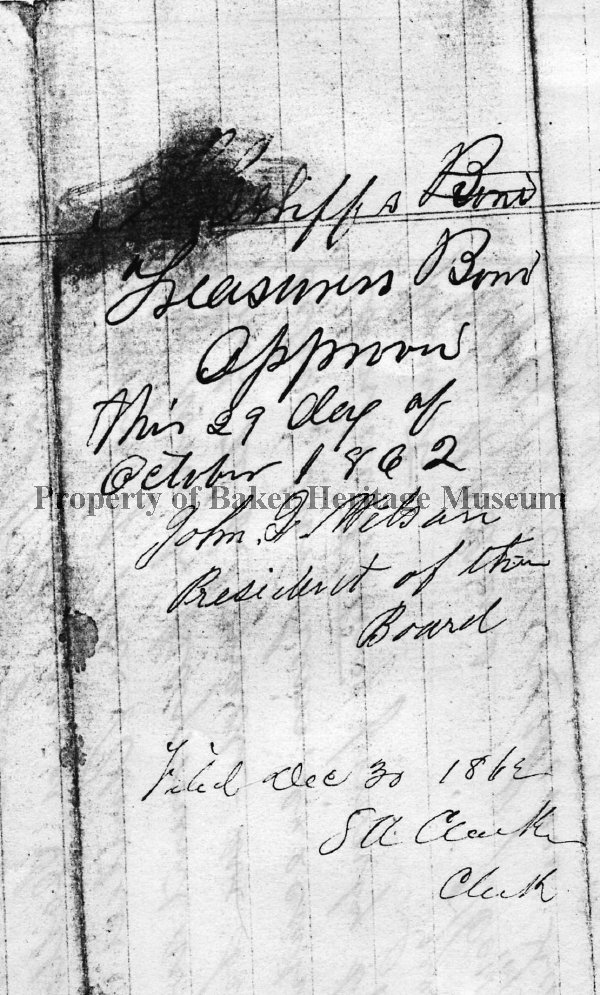 Bond
Treasurers Bond
Approved
this 29 day of
October 1862
Property of Baker Heritage Museum
John Q. Wilson
President of the
Board
Filed Dec 30 1862
S A Clarke
Clerk